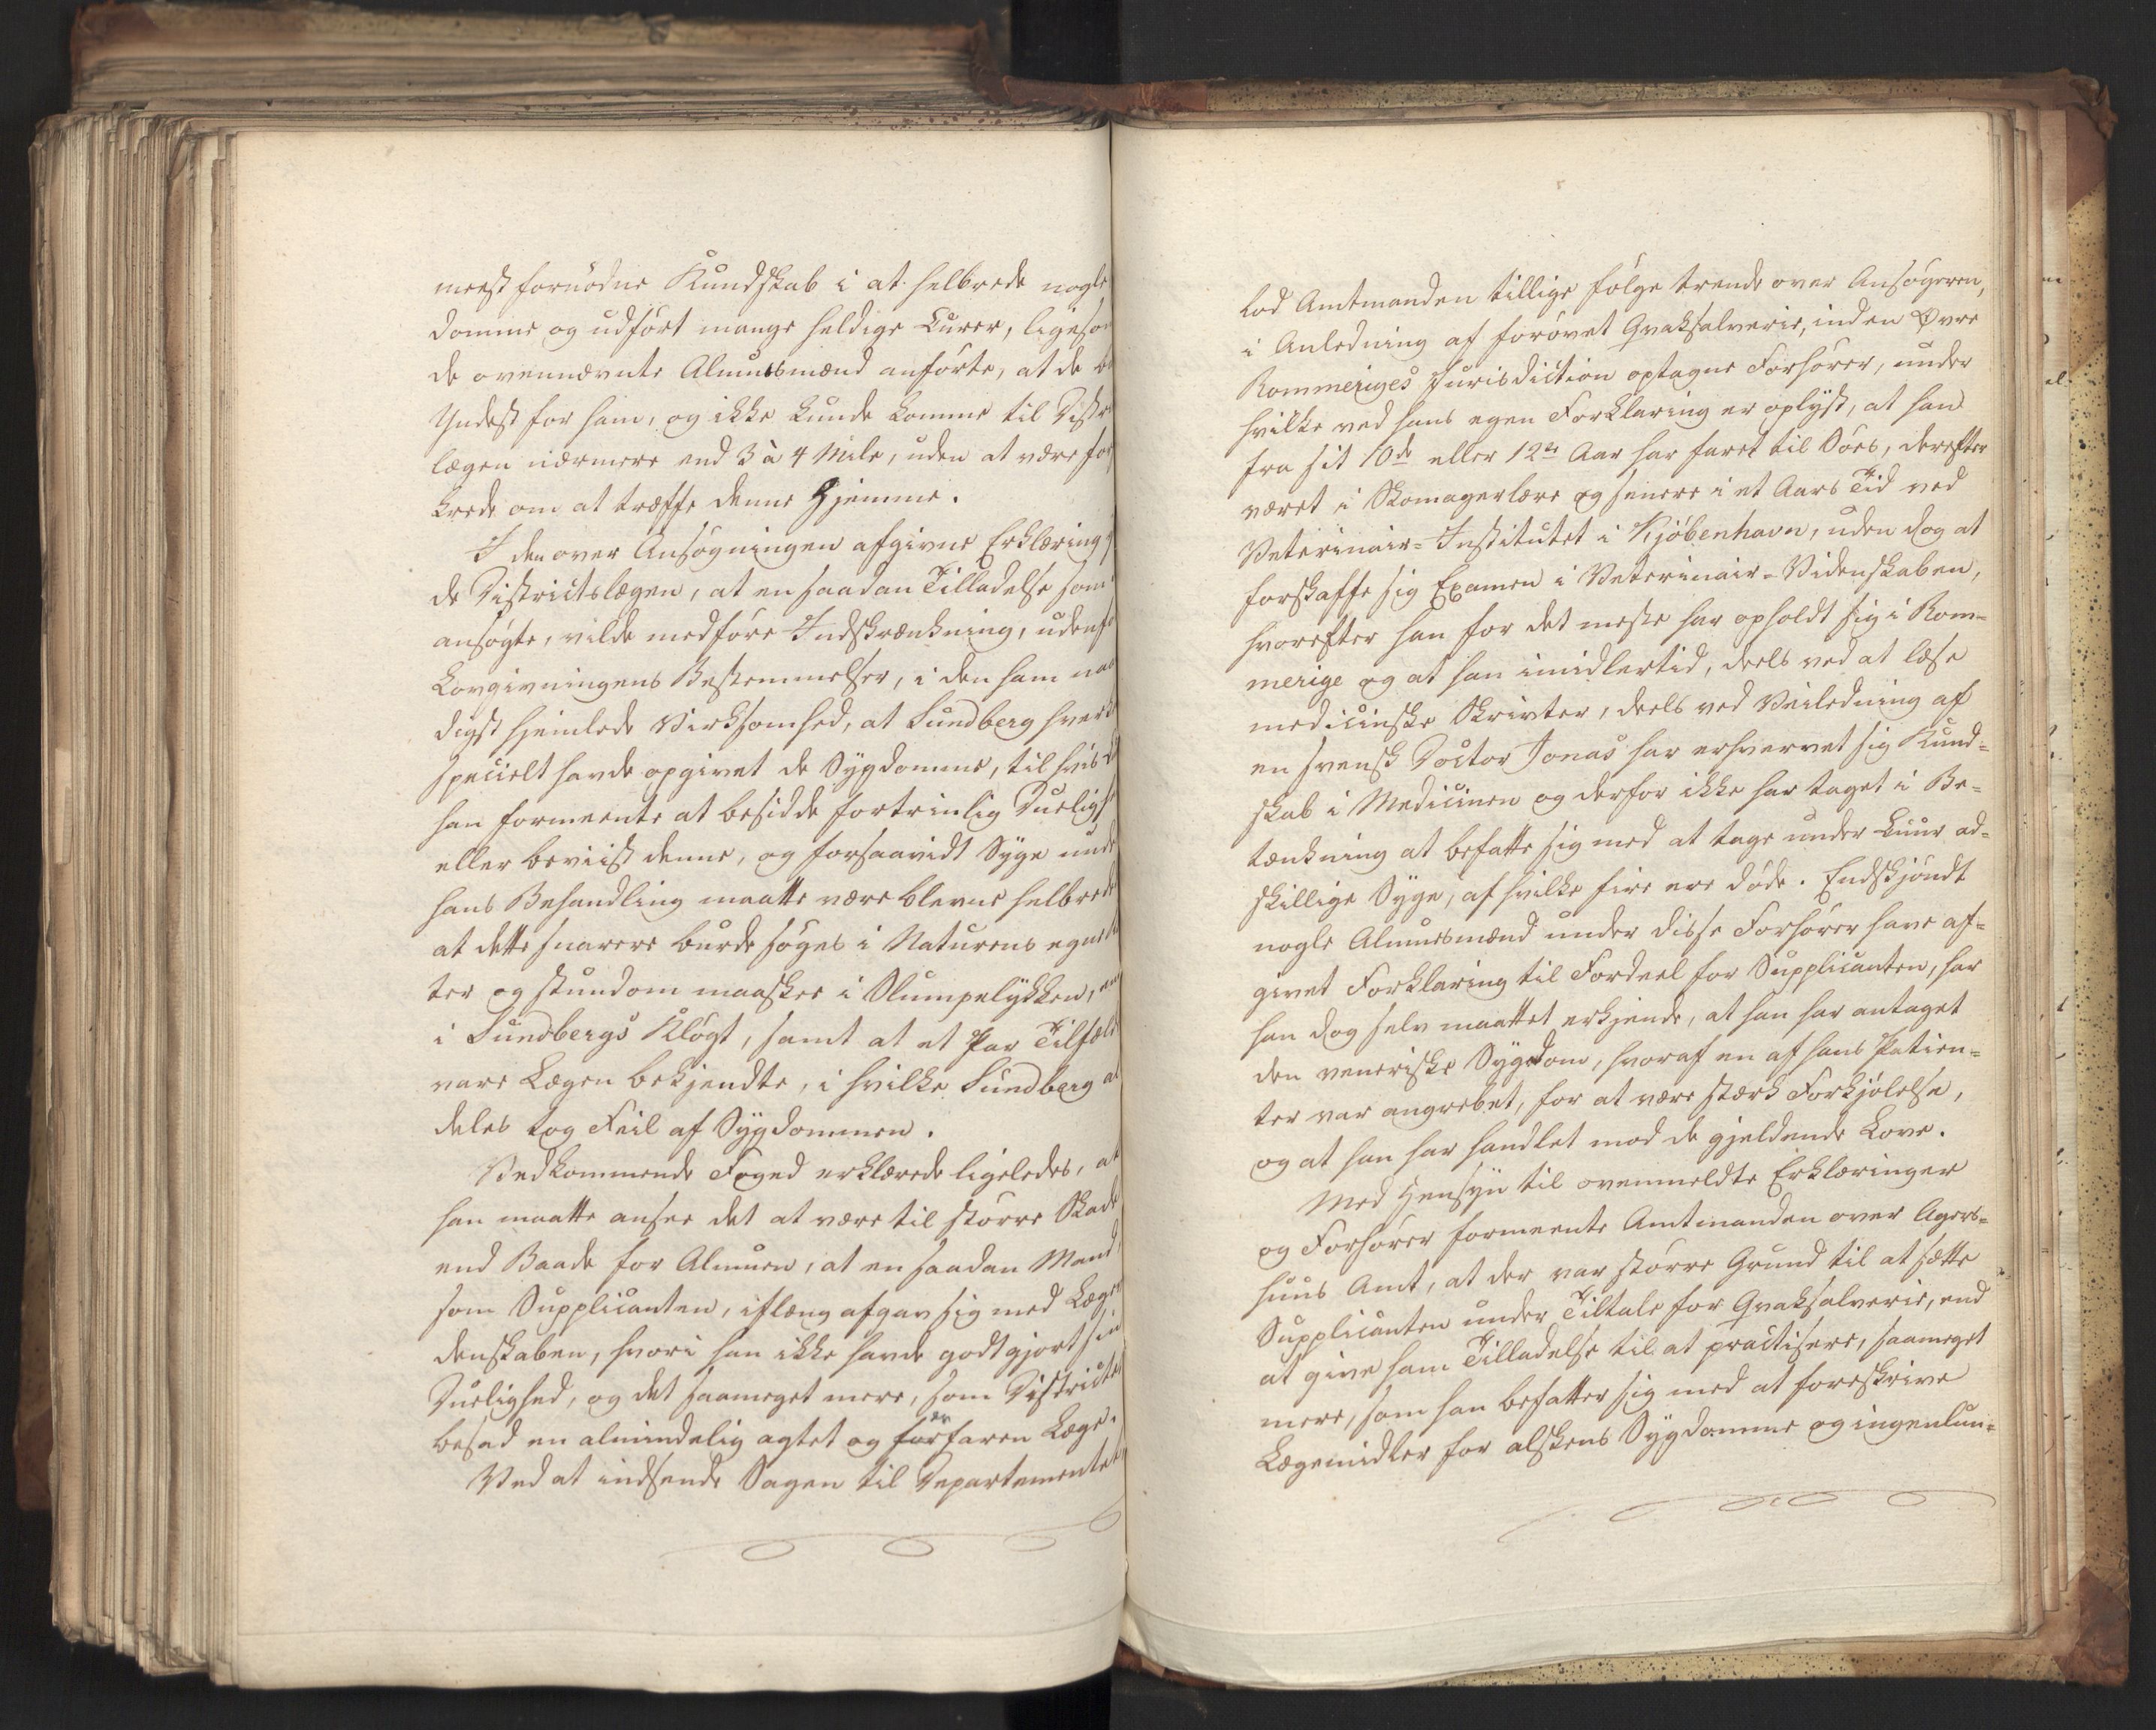 meest fornødne Kundskab i at helbrede nogle
domme og udført mange heldige Curer, ligesom
de ovennævnte Almuesmænd anførte, at de
Yndest for ham, og ikke kunde komme til Distr
lægen nærmere end 3 à 4 Mile, uden at være for
krede om at træffe denne Hjemme.
I den over Ansøgningen afgivne Erklæring
de Districtslægen, at en saadan Tilladelse som
ansøgte, vilde medføre Indskrænkning, udenfo
Lovgivningens Bestemmelser, i den ham naa
digst hjemlede Virksomhed, at Sundberg hverk
specielt havde opgivet de Sygdomme, til hvis
han formeente at besidde fortrinlig Dueligh
eller beviist denne, og forsaavidt Syge unde
hans Behandling maatte være blevne helbrede
at dette snarere burde søges i Naturens egne
ter og stundom maaskee i Slumpelykken,
i Sundbergs Kløgt, samt at et Par Tilfæld
vare Lægen bekjendte, i hvilke Sundberg al
deles tog Feil af Sygdommen.
Vedkommende Foged erklærede ligeledes, at
han maatte ansee det at være til større Skade
end Baade for Almuen, at en saadan Mand
som Supplicanten, iflæng afgav sig med Læge
denskaben, hvori han ikke havde godtgjort sin
Duelighed, og det saameget mere, som Districtet
besad en almindelig agtet og erfaren Læge.
Ved at indsende Sagen til Departementet
lod Amtmanden tillige følge trende over Ansøgeren,
i Anledning af forøvet Qvaksalverie, inden Øvre
Rommeriges Jurisdiction optagne Forhører, under
hvilke ved hans egen Forklaring er oplyst, at han
fra sit 10de eller 12te Aar har faret til Søes, derefter
været i Skomagerlære og senere i et Aars Tid ved
Veterinair-Institutet i Kjøbenhavn, uden dog at
forskaffe sig Examen i Veterinair-Videnskaben,
hvorefter han for det meste har opholdt sig i Rom-
merige og at han imidlertid, deels ved at læse
medicinske Skrivter, deels ved Veiledning af
en svensk Doctor Jonas har erhvervet sig Kund-
skab i Medicinen og derfor ikke har taget i Be-
tænkning at befatte sig med at tage under Cuur ad-
skillige Syge, af hvilke fire ere døde. Endskjøndt
nogle Almuesmænd under disse Forhører have af-
givet Forklaring til Fordeel for Supplicanten, har
han dog selv maattet erkjende, at han har antaget
den veneriske Sygdom, hvoraf en af hans Patien-
ter var angrebet, for at være stærk Forkjølelse,
og at han har handlet mod de gjeldende Love.
Med Hensyn til ovenmeldte Erklæringer
og Forhører formeente Amtmanden over Agers-
huus Amt, at der var større Grund til at sætte
Supplicanten under Tiltale for Qvaksalverie, end
at give ham Tilladelse til at practisere, saameget
mere, som han befatter sig med at foreskrive
Lægemidler for alskens Sygdomme og ingenlun-